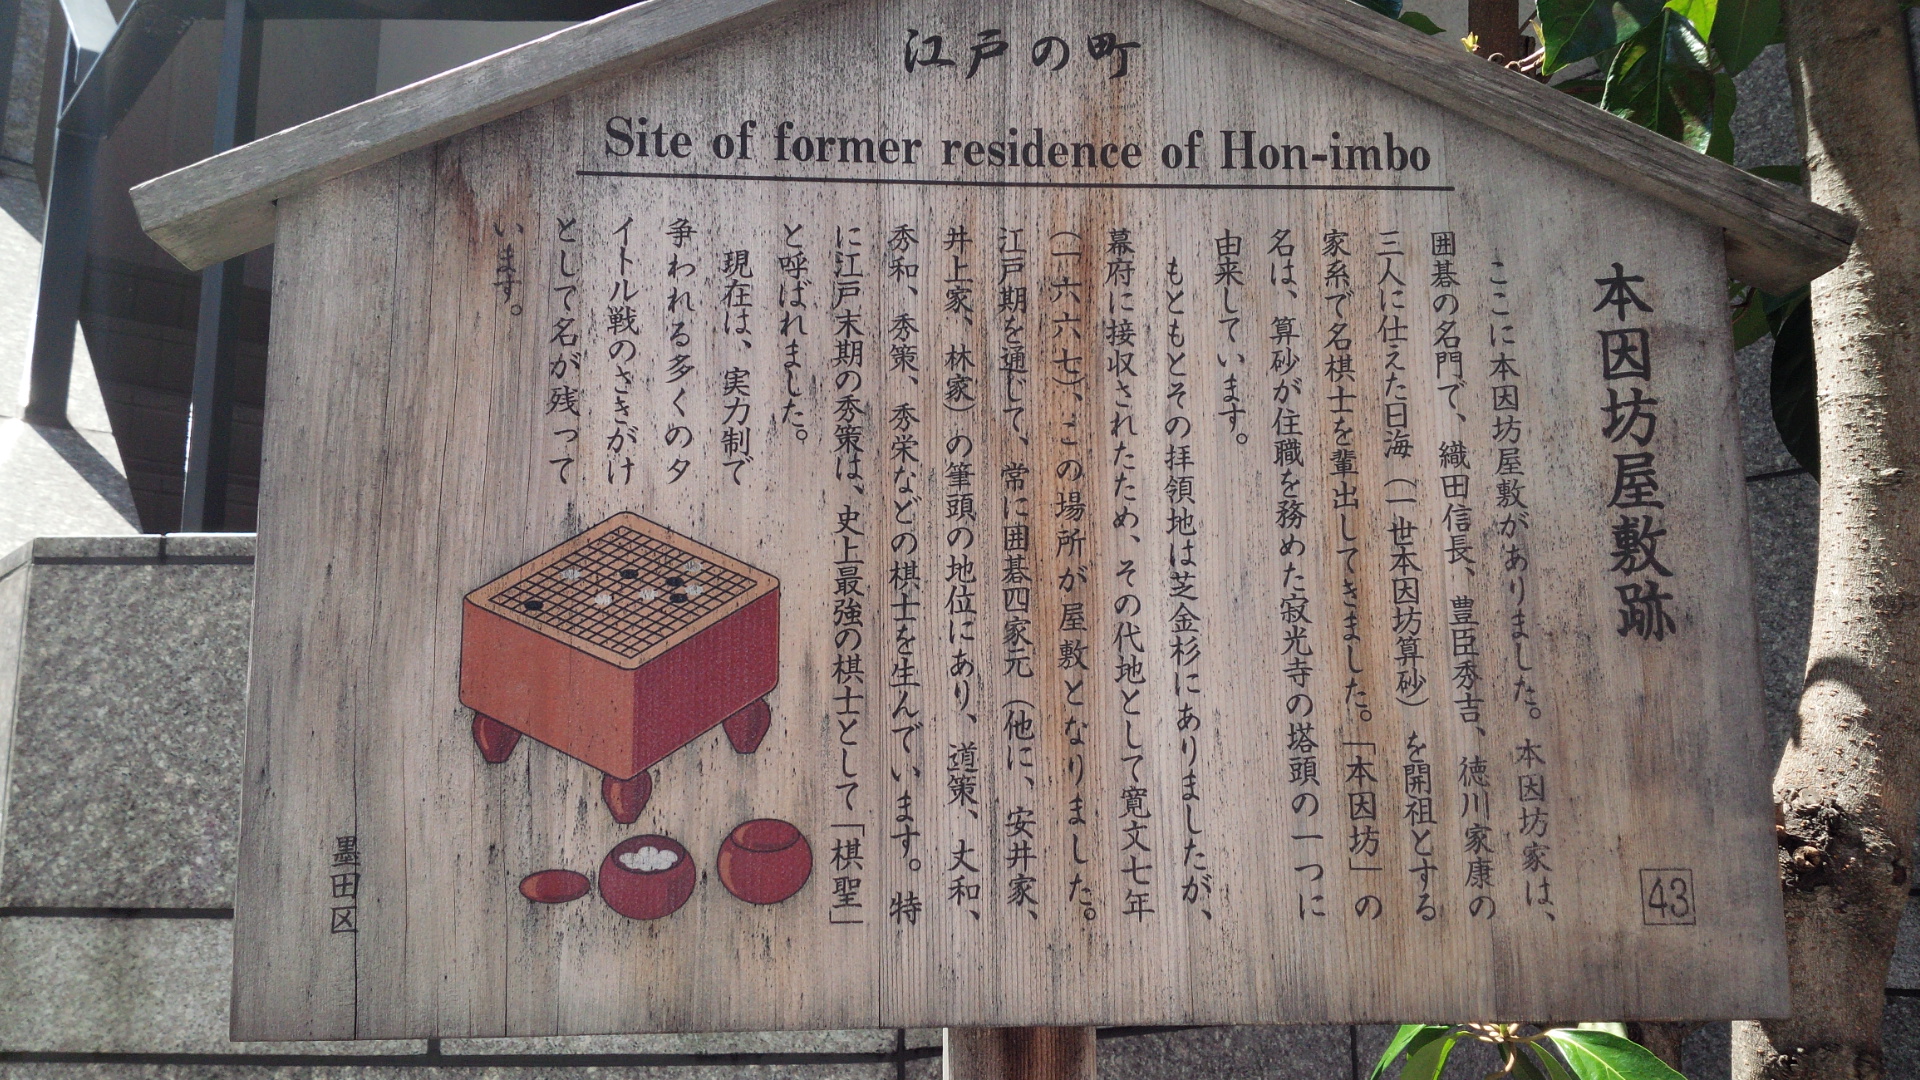 江戸の町
Site of former residence of Hon-imbo
本因坊屋敷跡
43
ここに本因坊屋敷がありました。本因坊家は、
囲碁の名門で、織田信長、豊臣秀吉、徳川家康の
三人に仕えた日海（一世本因坊算砂）を開祖とする
家系で名棋士を輩出してきました。「本因坊」の
名は、算砂が住職を務めた寂光寺の塔頭の一つに
由来しています。
もともとその拝領地は芝金杉にありましたが、
幕府に接収されたため、その代地として寛文七年
（一六六七）、この場所が屋敷となりました。
江戸期を通じて、常に囲碁四家元（他に、安井家、
井上家、林家）の筆頭の地位にあり、道策、丈和、
秀和、秀策、秀栄などの棋士を生んでいます。特
に江戸末期の秀策は、史上最強の棋士として「棋聖」
と呼ばれました。
現在は、実力制で
争われる多くのタ
イトル戦のさきがけ
として名が残って
います。
墨田区